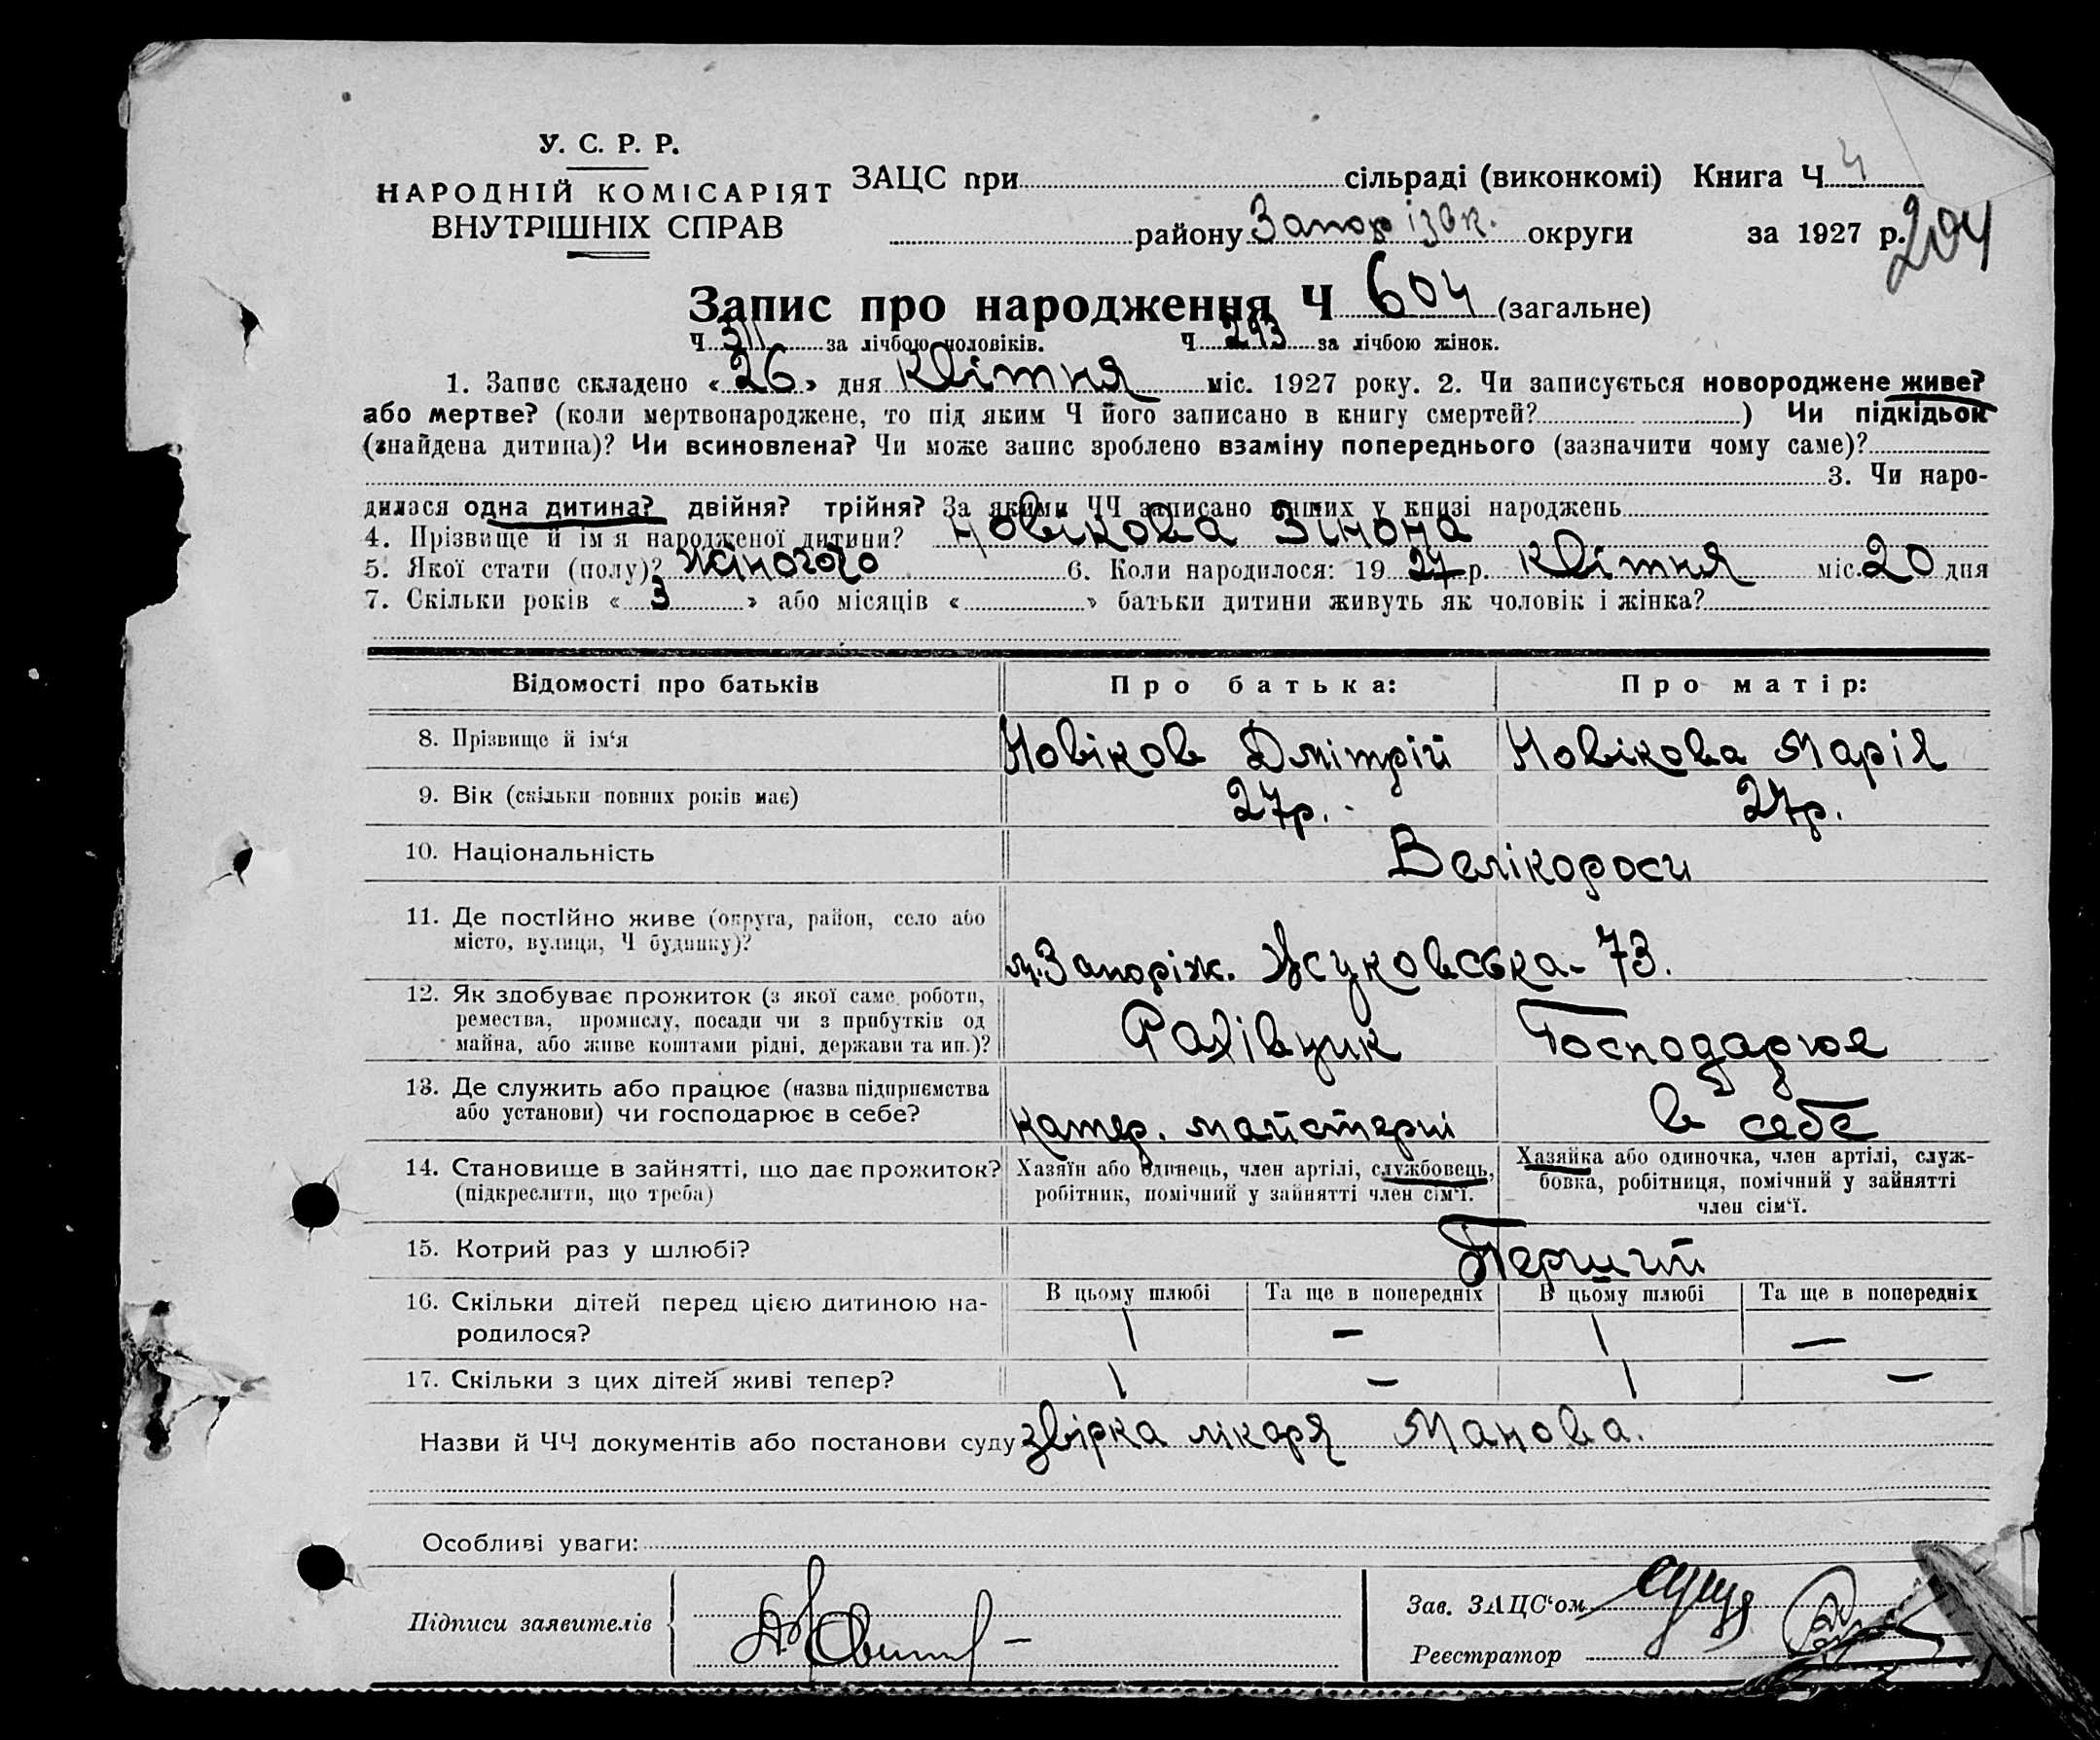 У. С. Р. Р.
НАРОДНІЙ КОМІСАРІЯТ
ВНУТРІШНІХ СПРАВ
ЗАЦС при сільраді (виконкомі) Книга Ч 4
району Запорізьк. округи за 1927 р. 204
Запис про народження Ч 604 (загальне)
Ч 311 за лічбою чоловіків. Ч 293 за лічбою жінок.
1. Запис складено « 26 » дня Квітня міс. 1927 року. 2. Чи записується новороджене живе?
або мертве? (коли мертвонароджене, то під яким Ч його записано в книгу смертей? ) Чи підкідьок
(знайдена дитина)? Чи всиновлена? Чи може запис зроблено взаміну попереднього (зазначити чому саме)?
3. Чи наро-
дилася одна дитина? двійня? трійня? За якими ЧЧ записано инших у книзі народжень
4. Прізвище й ім'я народженої дитини? Новікова Зінона
5. Якої стати (полу)? жіночого 6. Коли народилося: 19 27 р. Квітня міс. 20 дня
7. Скільки років « 3 » або місяців « » батьки дитини живуть як чоловік і жінка?
Відомості про батьків Про батька: Про матір:
8. Прізвище й ім'я Новіков Дмітрій Новікова Марія
9. Вік (скільки повних років має) 27р. 27р.
10. Національність Велікороси
11. Де постійно живе (округа, район, село або
місто, вулиця, Ч будинку)?
м. Запоріж. Жуковська - 73.
12. Як здобуває прожиток (з якої саме роботи,
ремества, промислу, посади чи з прибутків од
майна, або живе коштами рідні, держави та ин.)?
Рахівцик Господарює
13. Де служить або працює (назва підприємства
або установи) чи господарює в себе?
катер. майстерні в себе
14. Становище в зайнятті, що дає прожиток?
(підкреслити, що треба)
Хазяїн або одинець, член артілі, службовець,
робітник, помічний у зайнятті член сім'ї.
Хазяйка або одиночка, член артілі, служ-
бовка, робітниця, помічний у зайнятті
член сім'ї.
15. Котрий раз у шлюбі? Перший
16. Скільки дітей перед цією дитиною на-
родилося?
В цьому шлюбі Та ще в попередніх В цьому шлюбі Та ще в попередніх
1 — 1 —
17. Скільки з цих дітей живі тепер? 1 — 1 —
Назви й ЧЧ документів або постанови суду звірка лікаря Манова.
Особливі уваги:
Підписи заявителів
Зав. ЗАЦС'ом
Реєстратор